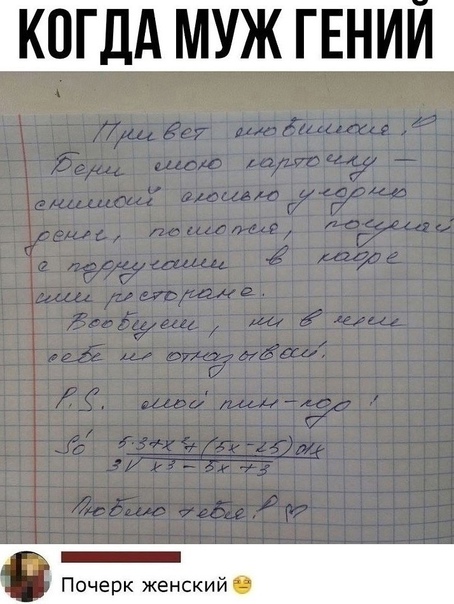 КОГДА МУЖ ГЕНИЙ
Привет любимая!
Бери мою карточку —
снимай сколько угодно
денег, пошопся, посиди
с подругами в кафе
или ресторане.
Вообщем, ни в чем
себе не отказывай.
P.S. мой пин-код:
5·3+x²+(5x-25)dx
3√x3-5x+3
Люблю тебя!
Почерк женский 😑